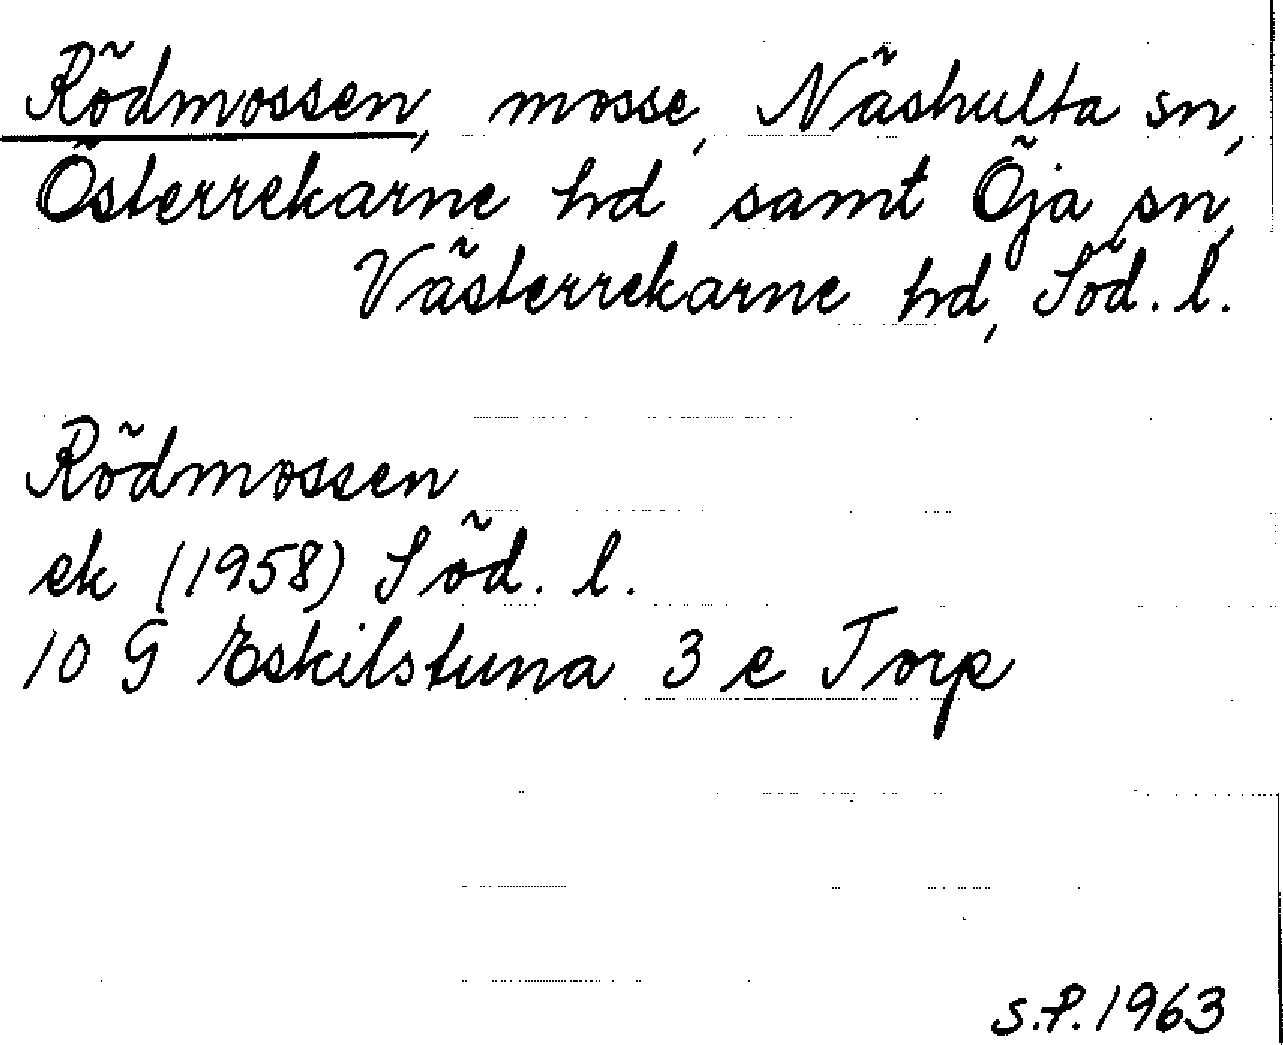 Rödmossen, mosse, Näshulta sn,
Österrekarne hd samt Öja sn,
Västerrekarne hd, Söd. l.
Rödmossen
ek (1958) Söd. l.
10 G Eskilstuna 3 e Torp
S.P. 1963